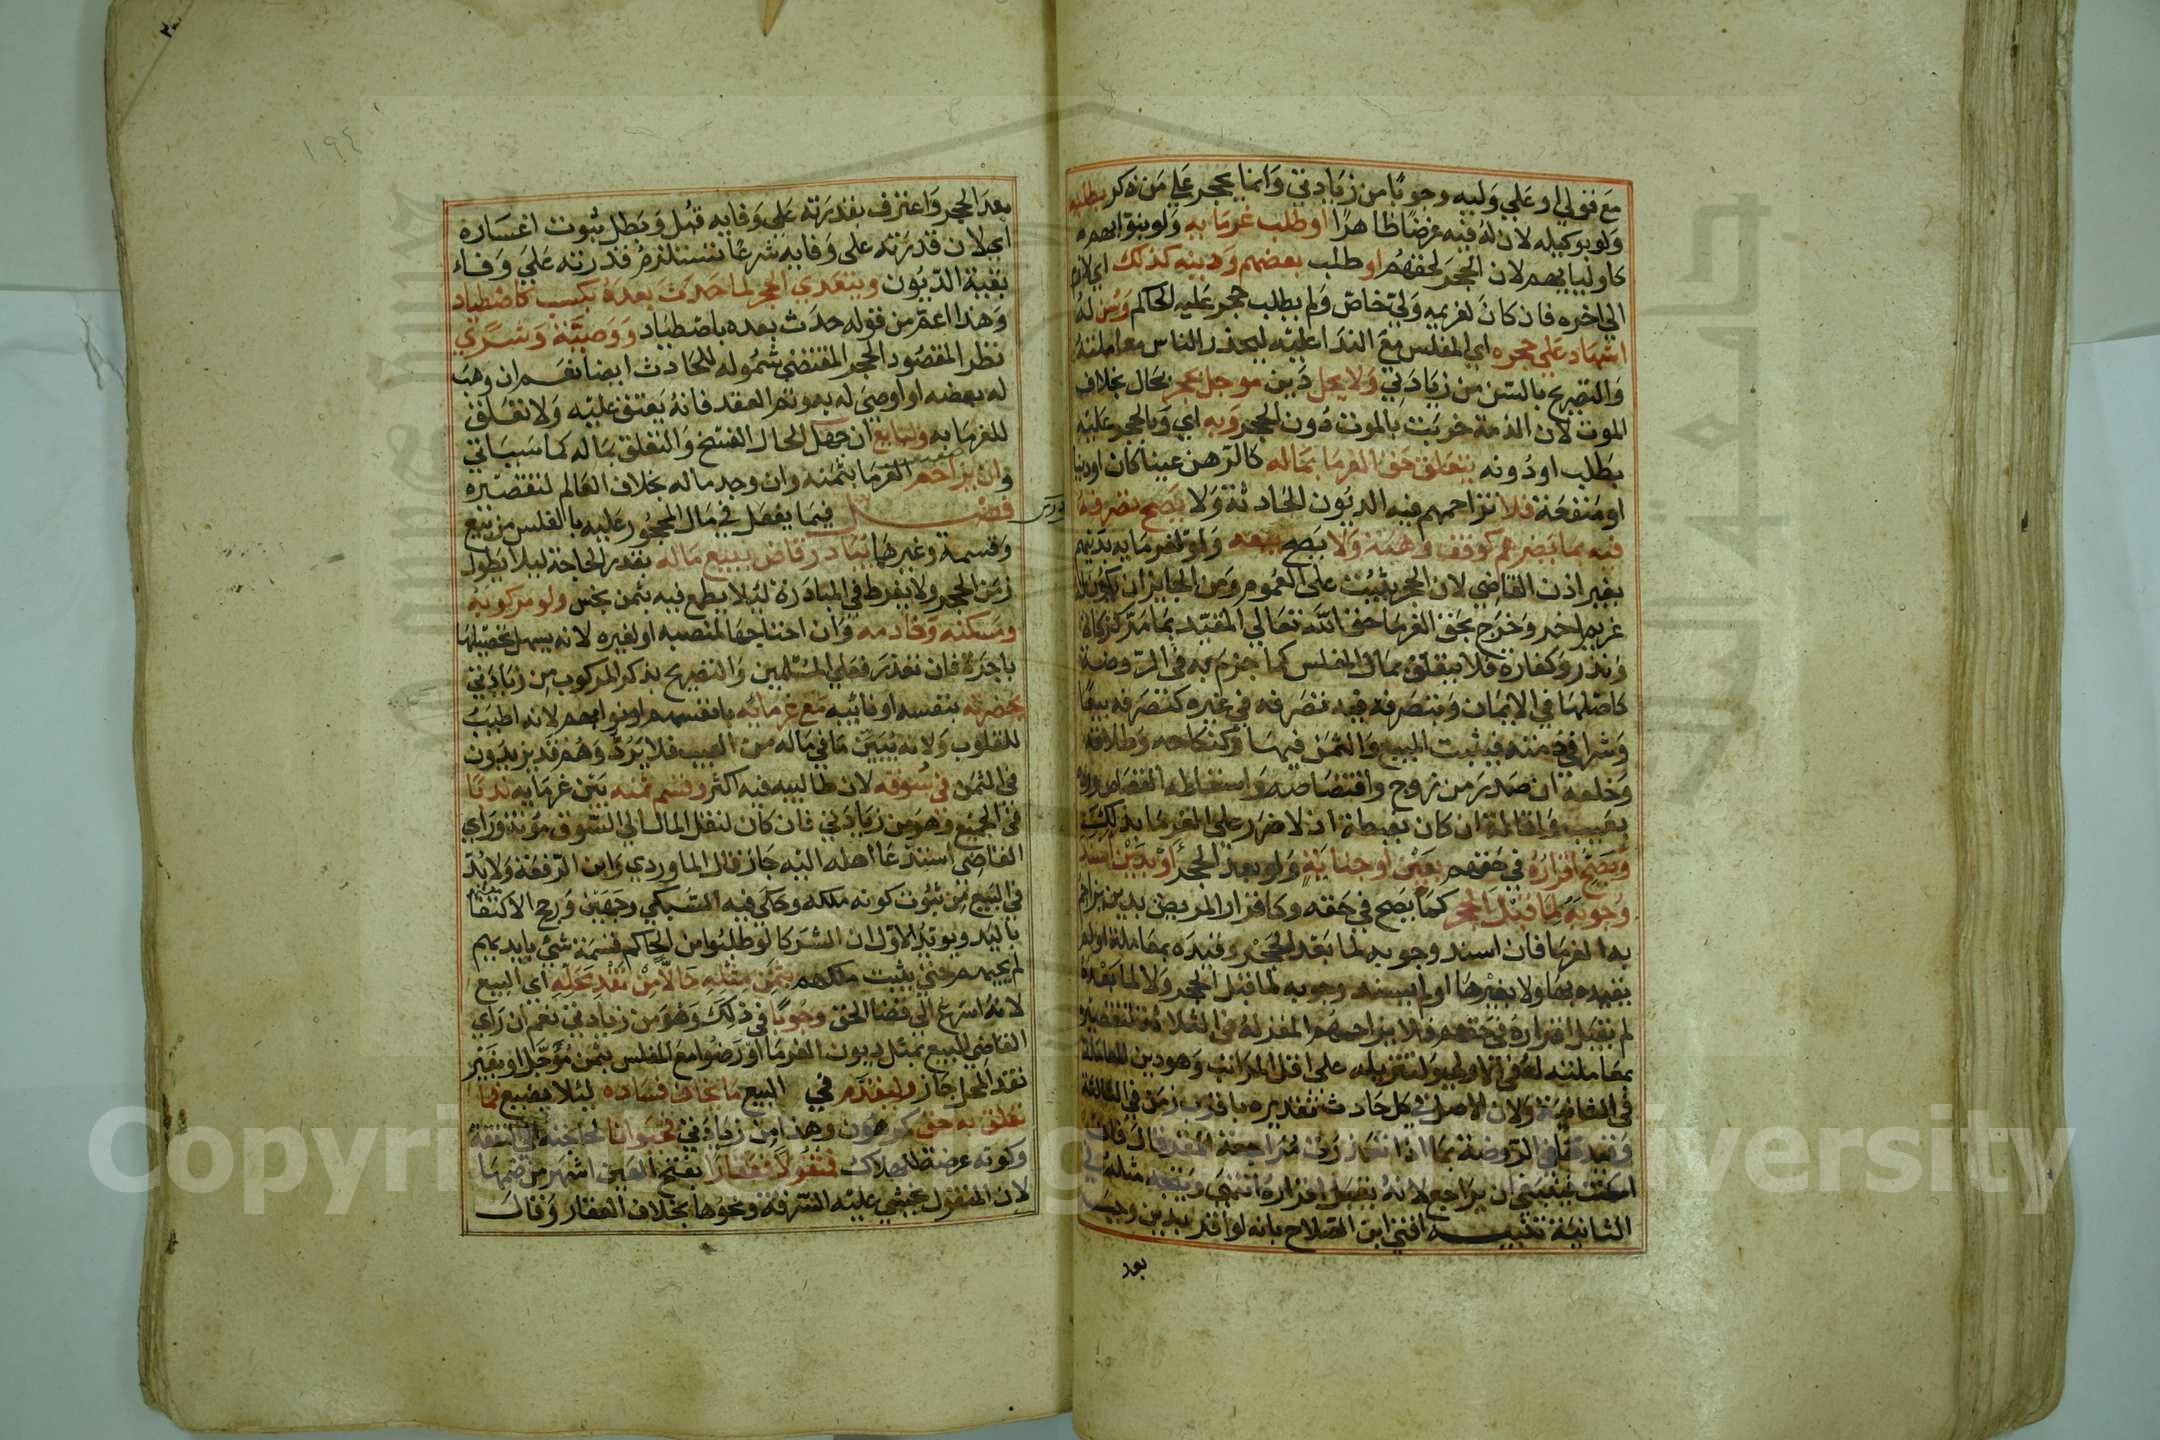 مع قولي او علي وليه وجوبا من زيادتي وانما يحجر علي من ذكر بطلبه
ولو بوكيله لان له فيه غرضا ظاهرا او طلب غرمايه ولو بنوابهم
كاوليايهم لان الحجر لحقهم او طلب بعضهم ودينه كذلك اي لازم
الي اخره فان كان لغريمه ولي خاص ولم يطلب حجر عليه الحاكم وسن له
اشهاد علي حجره اي المفلس مع الندا عليه ليحذر الناس معاملته
والتصريح بالسن من زيادتي ولا يحل دين موجل بحجر بحال بخلاف
الموت لان الذمة خربت بالموت دون الحجر وبه اي وبالحجر عليه
بطلب او دونه يتعلق حق الغرما بماله كالرهن عينا كان او دينا
او منفعة فلا تزاحمهم فيه الديون الحادثة ولا يصح تصرفه
فيه بما يضرهم كوقف وهبة ولا يصح بيعه ولو لغرمايه بدينهم
بغير اذن القاضي لان الحجر يثبت على العموم ومن الجايز ان يكون له
غريم اخر وخرج بحق الغرما حق الله تعالي المقيد بما مر كزكاة
ونذر وكفارة فلا يتعلق بمال المفلس كما جزم به في الروضة
كاصلها في الايمان وبتصرفه فيه تصرفه في غيره كتصرفه بيعا
وشرا في ذمته فيثبت المبيع والثمن فيها وكنكاحه وطلاقه
وخلعه ان صدر من زوج واقتصاصه واسقاطه القصاص ورده
بعيب واقالة ان كان بغبطة اذ لا ضرر على الغرما بذلك
ويصح اقراره في حقهم بعين او جناية ولو بعد الحجر او بدين اسند
وجوبه لما قبل الحجر كما يصح في حقه وكاقرار المريض بدين يزاحم
به الغرما فان اسند وجوبه لما بعد الحجر وقيده بمعاملة او لم
يقيده بها ولا بغيرها او لم يسند وجوبه لما قبل الحجر ولا لما بعده
لم يقبل اقراره في حقهم فلا يزاحمهم المقر له في الثلاثة لتقصيره
بمعاملته له في الاولي ولتنزيله على اقل المراتب وهو دين المعاملة
في الثانية ولان الاصل في كل حادث تقديره باقرب زمن في الثالثة
وقيدها في الروضة بما اذا تعذرت مراجعة المقر قال فان
امكنت فينبغي ان يراجع لانه يقبل اقراره انتهي ويتجه مثله في
الثانية تنبيه افتي ابن الصلاح بانه لو اقر بدين وجب
بعد
بعد الحجر واعترف بقدرته على وفايه قبل وبطل ثبوت اعساره
اي لان قدرته علي وفايه شرعا تستلزم قدرته علي وفاء
بقية الديون ويتعدي الحجر لما حدث بعده بكسب كاصطياد
وهذا اعم من قوله حدث بعده باصطياد ووصية وشري
نظر المقصود الحجر المقتضي شموله للحادث ايضا نعم ان وهب
له بعضه او اوصي له به وتم العقد فانه يعتق عليه ولا تعلق
للغرما به ولبايع ان جهل الحال الفسخ والتعلق بماله كما سياتي
وان يزاحم الغرما بثمنه وان وجد ماله بخلاف العالم لتقصيره
فصل فيما يفعل في مال المحجور عليه بالفلس من بيع
وقسمة وغيرهما يبادر قاض ببيع ماله بقدر الحاجة ليلا يطول
زمن الحجر ولا يفرط في المبادرة ليلا يطمع فيه بثمن بخس ولو مركوبه
ومسكنه وخادمه وان احتاجها لمنصبه او لغيره لانه يسهل تحصيلها
باجرة فان تعذر فعلي المسلمين والتصريح بذكر المركوب من زيادتي
بحضرته بنفسه او نائبه مع غرمائه بانفسهم او نوابهم لانه اطيب
للقلوب ولانه يبين ما في ماله من العيب فلا يرد وهم قد يزيدون
في الثمن في سوقه لان طالبيه فيه اكثر وقسم ثمنه بين غرمايه ندبا
في الجميع وهو من زيادتي فان كان لنقل المال الي السوق مؤنة وراي
القاضي استدعا اهله اليه جاز قال الماوردي وابن الرفعة ولا بد
في البيع من ثبوت كونه ملكه وحكي فيه السبكي وجهين ورجح الاكتفا
باليد ويؤيد الاول ان الشركا لو طلبوا من الحاكم قسمة شي بايديهم
لم يجبهم حتي يثبت ملكهم بثمن مثله حالا من نقد محله اي البيع
لانه اسرع الي قضا الحق وجوبا في ذلك وهو من زيادتي نعم ان راي
القاضي البيع بمثل ديون الغرما او رضوا مع المفلس بثمن مؤجل او بغير
نقد المحل جاز وليقدم في البيع ما يخاف فساده ليلا يضيع فما
تعلق به حق كمرهون وهذا من زيادتي فحيوانا لحاجته الي النفقة
وكونه عرضة للهلاك فمنقولا فعقارا بفتح العين اشهر من ضمها
لان المنقول يخشي عليه السرقة ونحوها بخلاف العقار وقال
١٩٤
Copyright © King Saud University